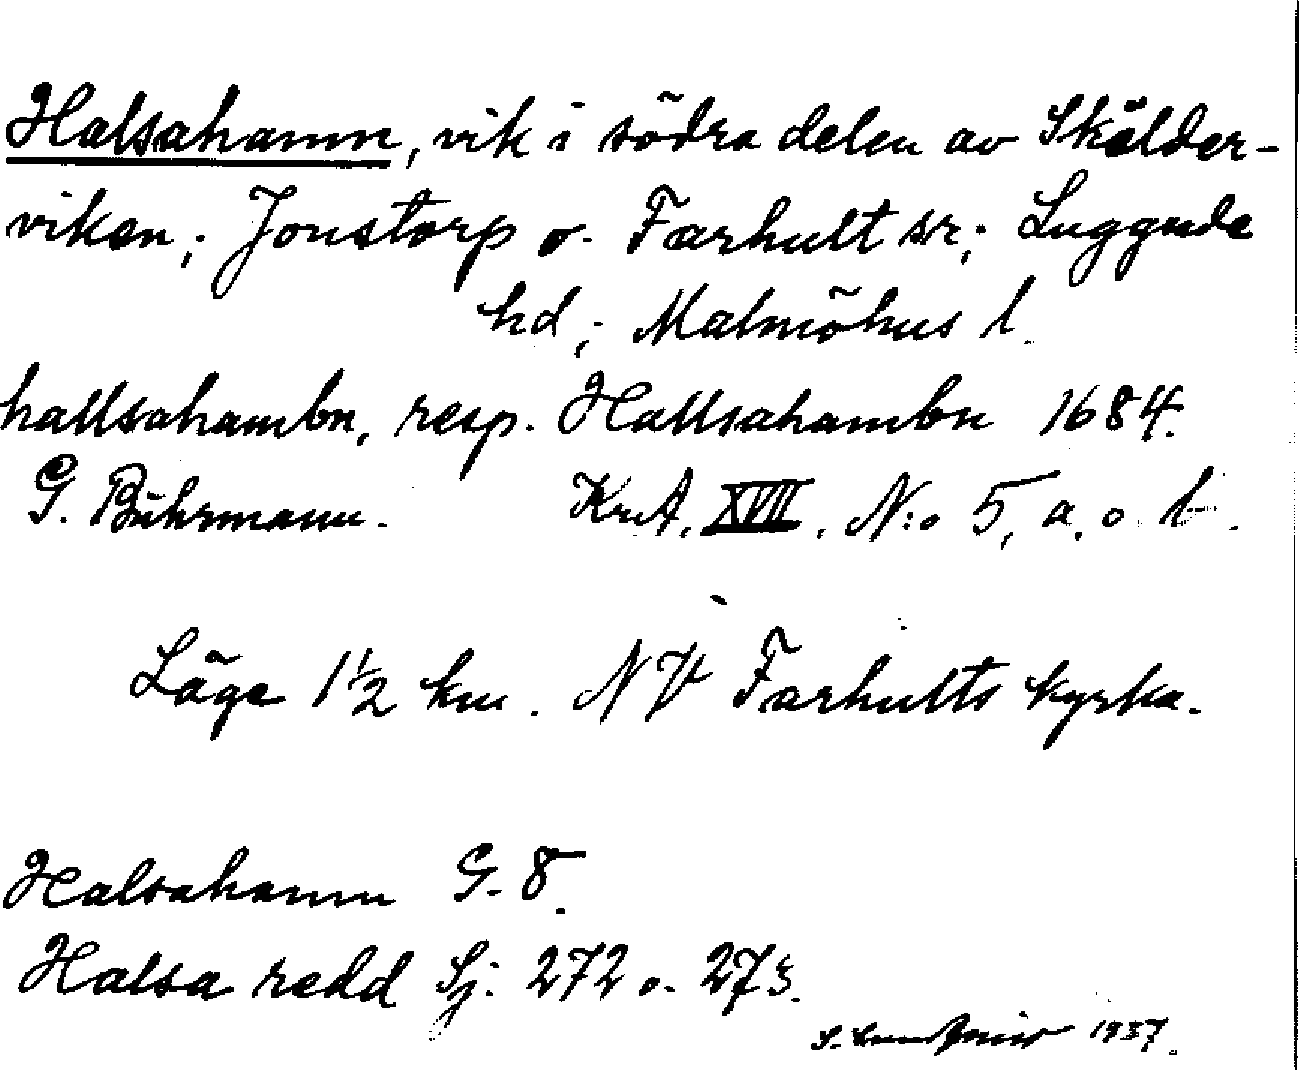 Halsahamn, vik i södra delen av Skälder-
viken; Jonstorp o. Farhult sr; Luggude
hd; Malmöhus l.
hallsahambn, resp. Hallsahambn 1684.
G. Buhrmann. KrA. XVII. N:o 5, a. o. b.
Läge 1½ km. NV Farhults kyrka.
Halsahamn G. 8.
Halsa redd Sj. 272 o. 273.
S. Lundqvist 1937.